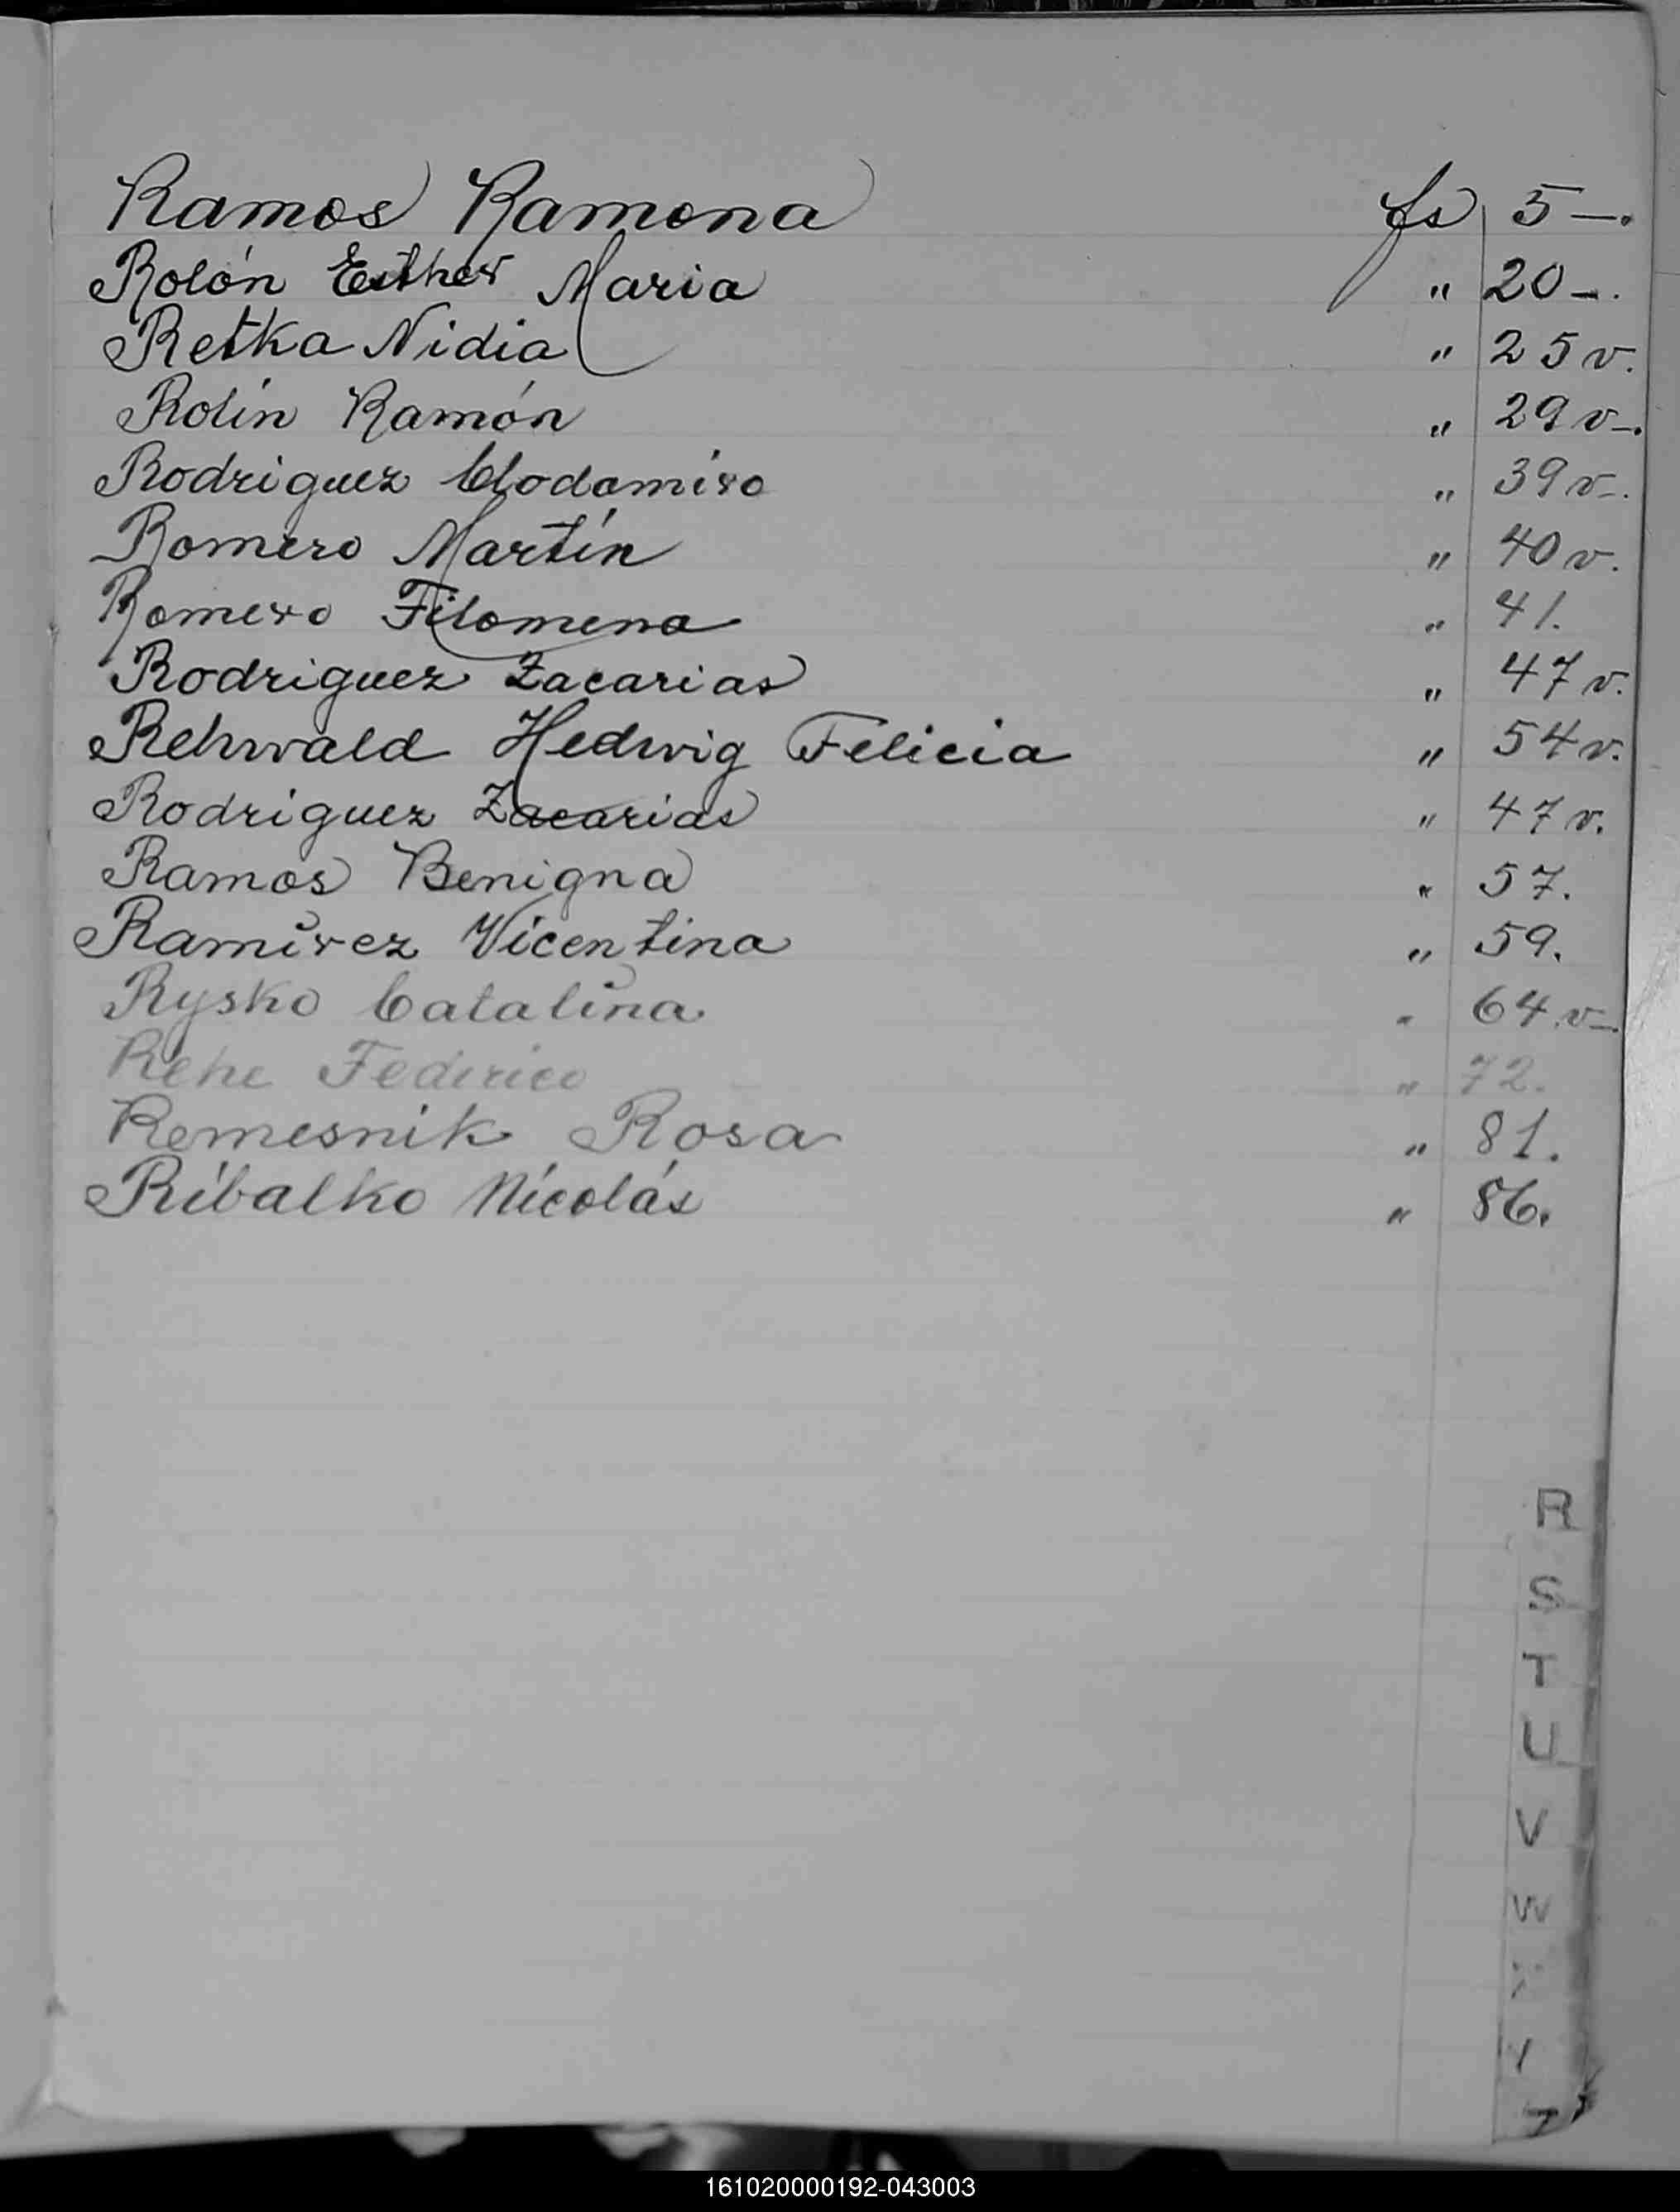 Ramos Ramona fs 5-.
Rolón Esther Maria " 20-.
Retka Nidia " 25 v.
Rolín Ramón " 29 v-.
Rodriguez Clodomiro " 39 v-.
Romero Martín " 40 v.
Romero Filomena " 41.
Rodriguez Zacarias " 47 v.
Rehwald Hedwig Felicia " 54 v.
Rodriguez Zacarias " 47 v.
Ramos Benigna " 57.
Ramírez Vicentina " 59.
Rysko Catalina " 64 v-.
Rehe Federico " 72.
Remesnik Rosa " 81.
Ribalko Nicolás " 86.
R
S
T
U
V
W
Y
Z
161020000192-043003